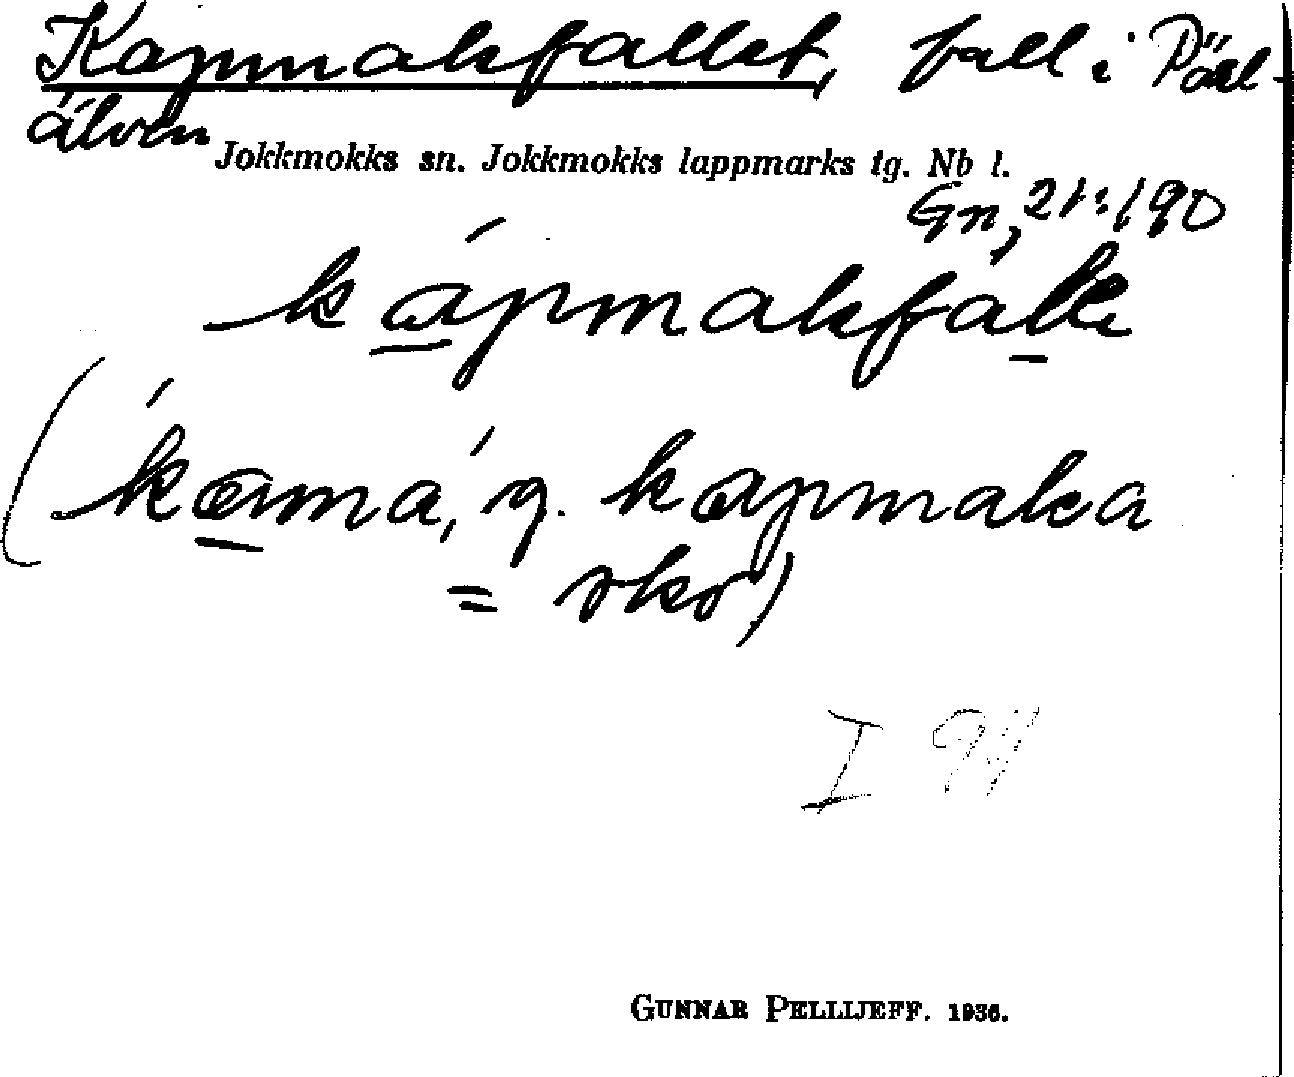 Kapmakfallet, fall i Pärl-
älven
Jokkmokks sn. Jokkmokks lappmarks tg. Nb l.
Gn, 21:190
kápmakfalle
(káma, g. kapmaka
= sko)
I
GUNNAR PELLIJEFF. 1936.